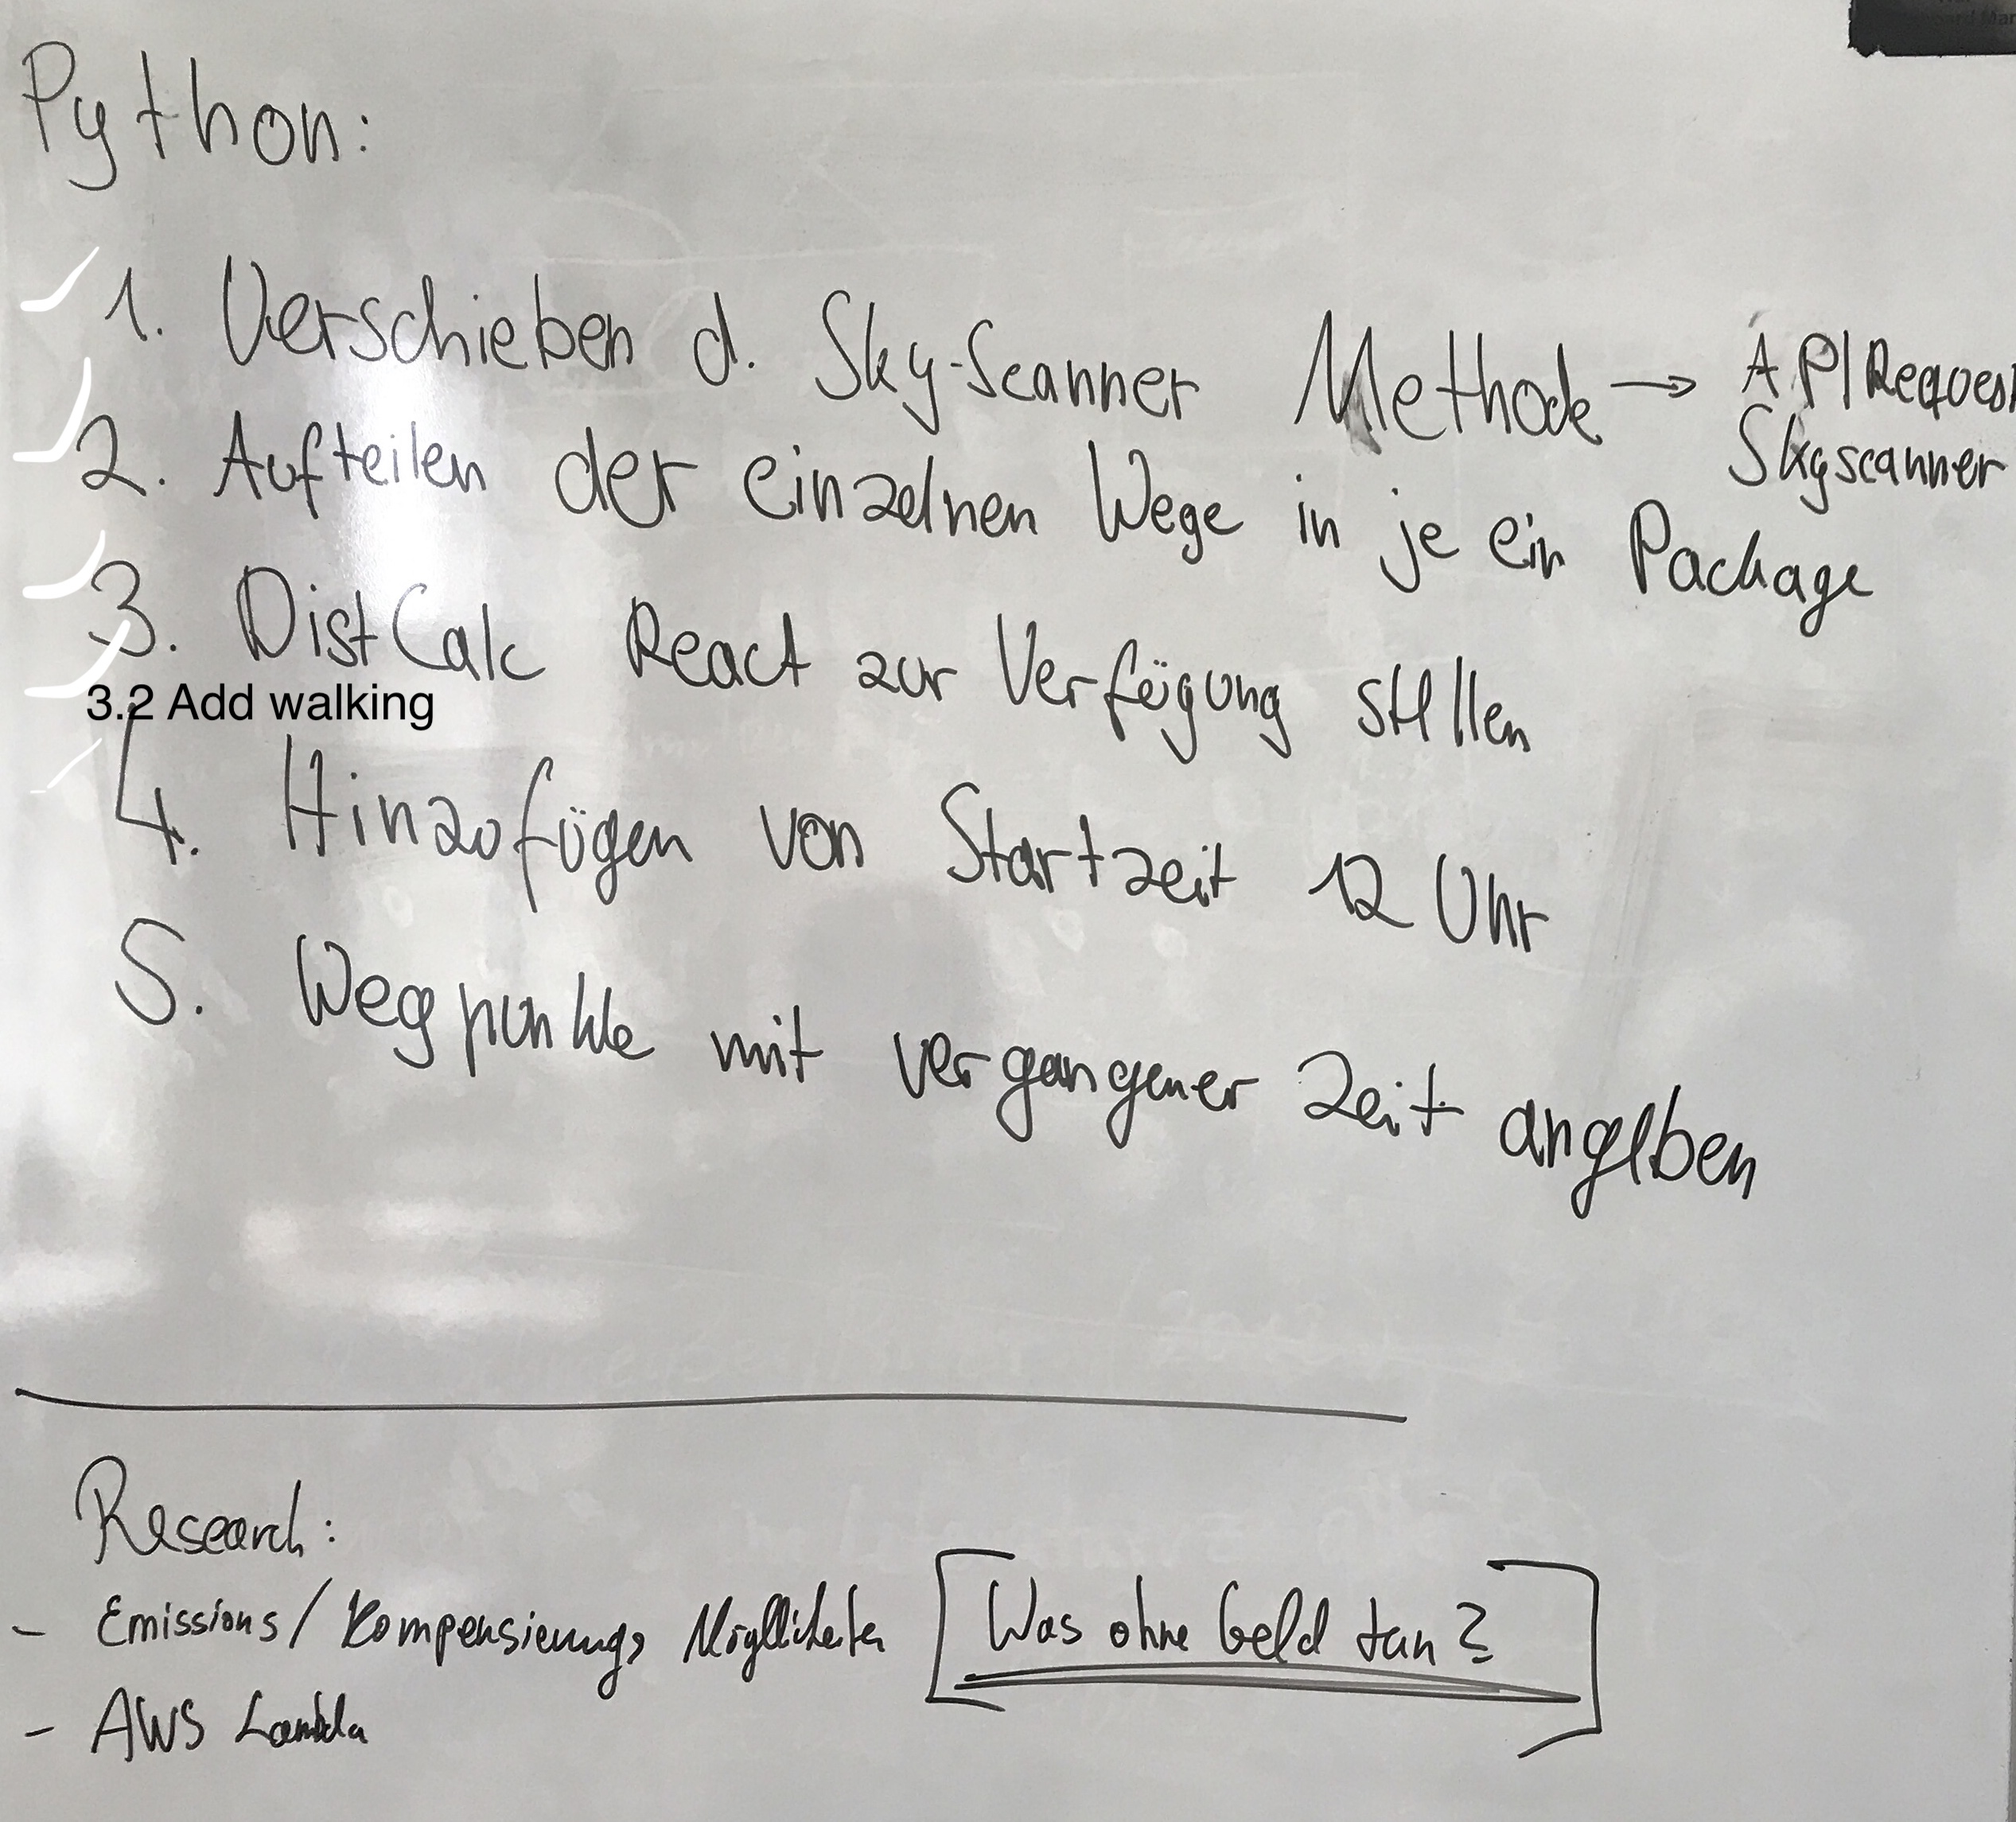 Python:
1. Verschieben d. Sky-Scanner Methode → API Request
Skyscanner
2. Aufteilen der einzelnen Wege in je ein Package
3. DistCalc React zur Verfügung stellen
3.2 Add walking
4. Hinzufügen von Startzeit 12 Uhr
5. Wegpunkte mit vergangener Zeit angeben
Research:
- Emissions/Kompensierungs [Was ohne Geld tun?]
- AWS Lambda